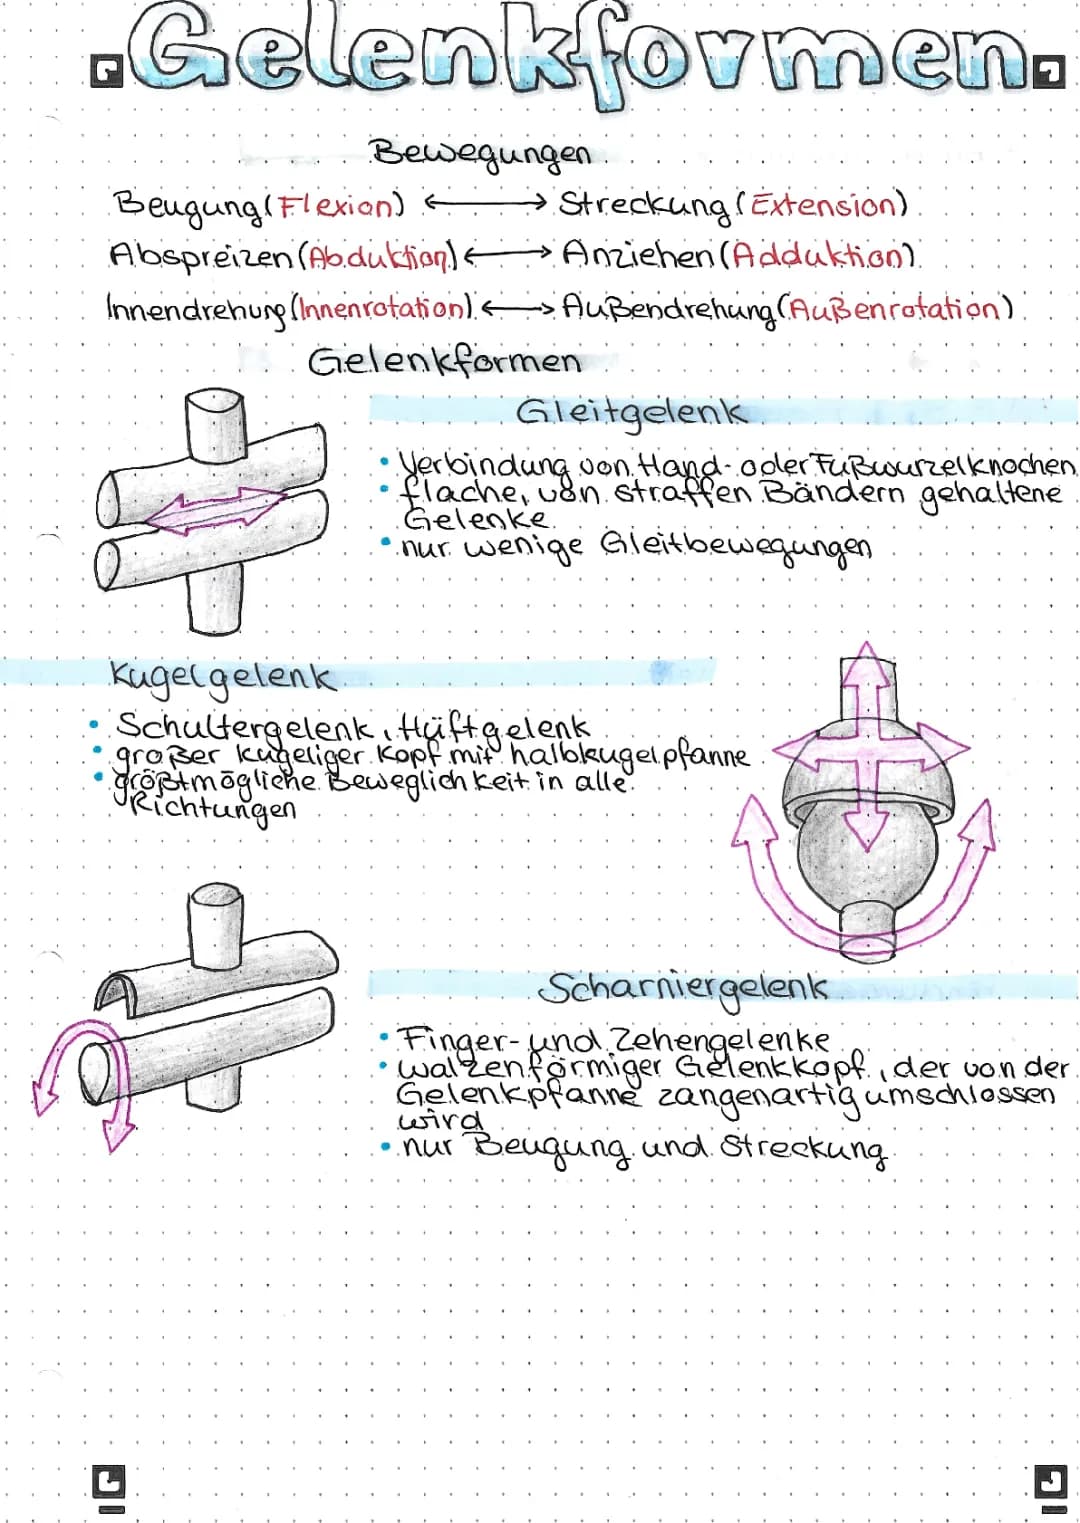 Gelenkformen
Bewegungen
Beugung (Flexion) ⟷ Streckung (Extension)
Abspreizen (Abduktion) ⟷ Anziehen (Adduktion)
Innendrehung (Innenrotation) ⟷ Außendrehung (Außenrotation)
Gelenkformen
Gleitgelenk
• Verbindung von Hand- oder Fußwurzelknochen
• flache, von straffen Bändern gehaltene
Gelenke
• nur wenige Gleitbewegungen
Kugelgelenk
• Schultergelenk, Hüftgelenk
• großer kugeliger Kopf mit halbkugelpfanne
• größtmögliche Beweglichkeit in alle
Richtungen
Scharniergelenk
• Finger- und Zehengelenke
• walzenförmiger Gelenkkopf, der von der
Gelenkpfanne zangenartig umschlossen
wird
• nur Beugung und Streckung